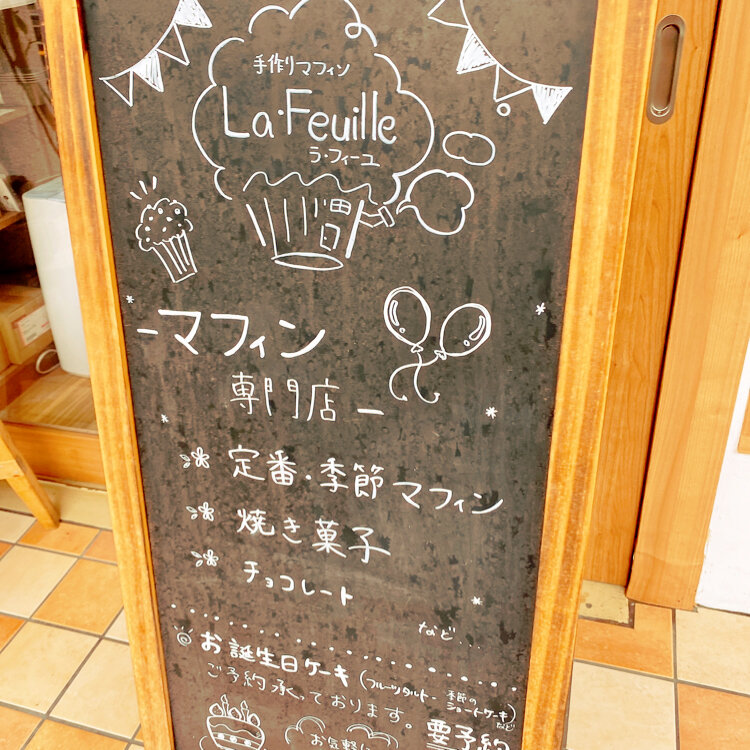 手作りマフィン
La・Feuille
ラ・フィーユ
ーマフィン
専門店ー
定番・季節マフィン
焼き菓子
チョコレート
など…
お誕生日ケーキ(フルーツタルト・季節のショートケーキ)など
ご予約承っております。要予約
お気軽に